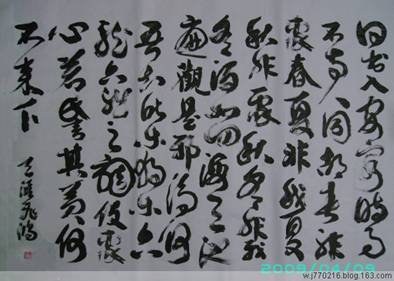 日出入安窮時世
不与人同故春非
我春夏非我夏
秋非我秋冬非我
冬泊如四海之池
遍觀是邪謂何
吾知所乐独乐六
龍六龍之調使我
心若訾其黄何
不来下
2009/04/09
w.j770216.blog.163.com